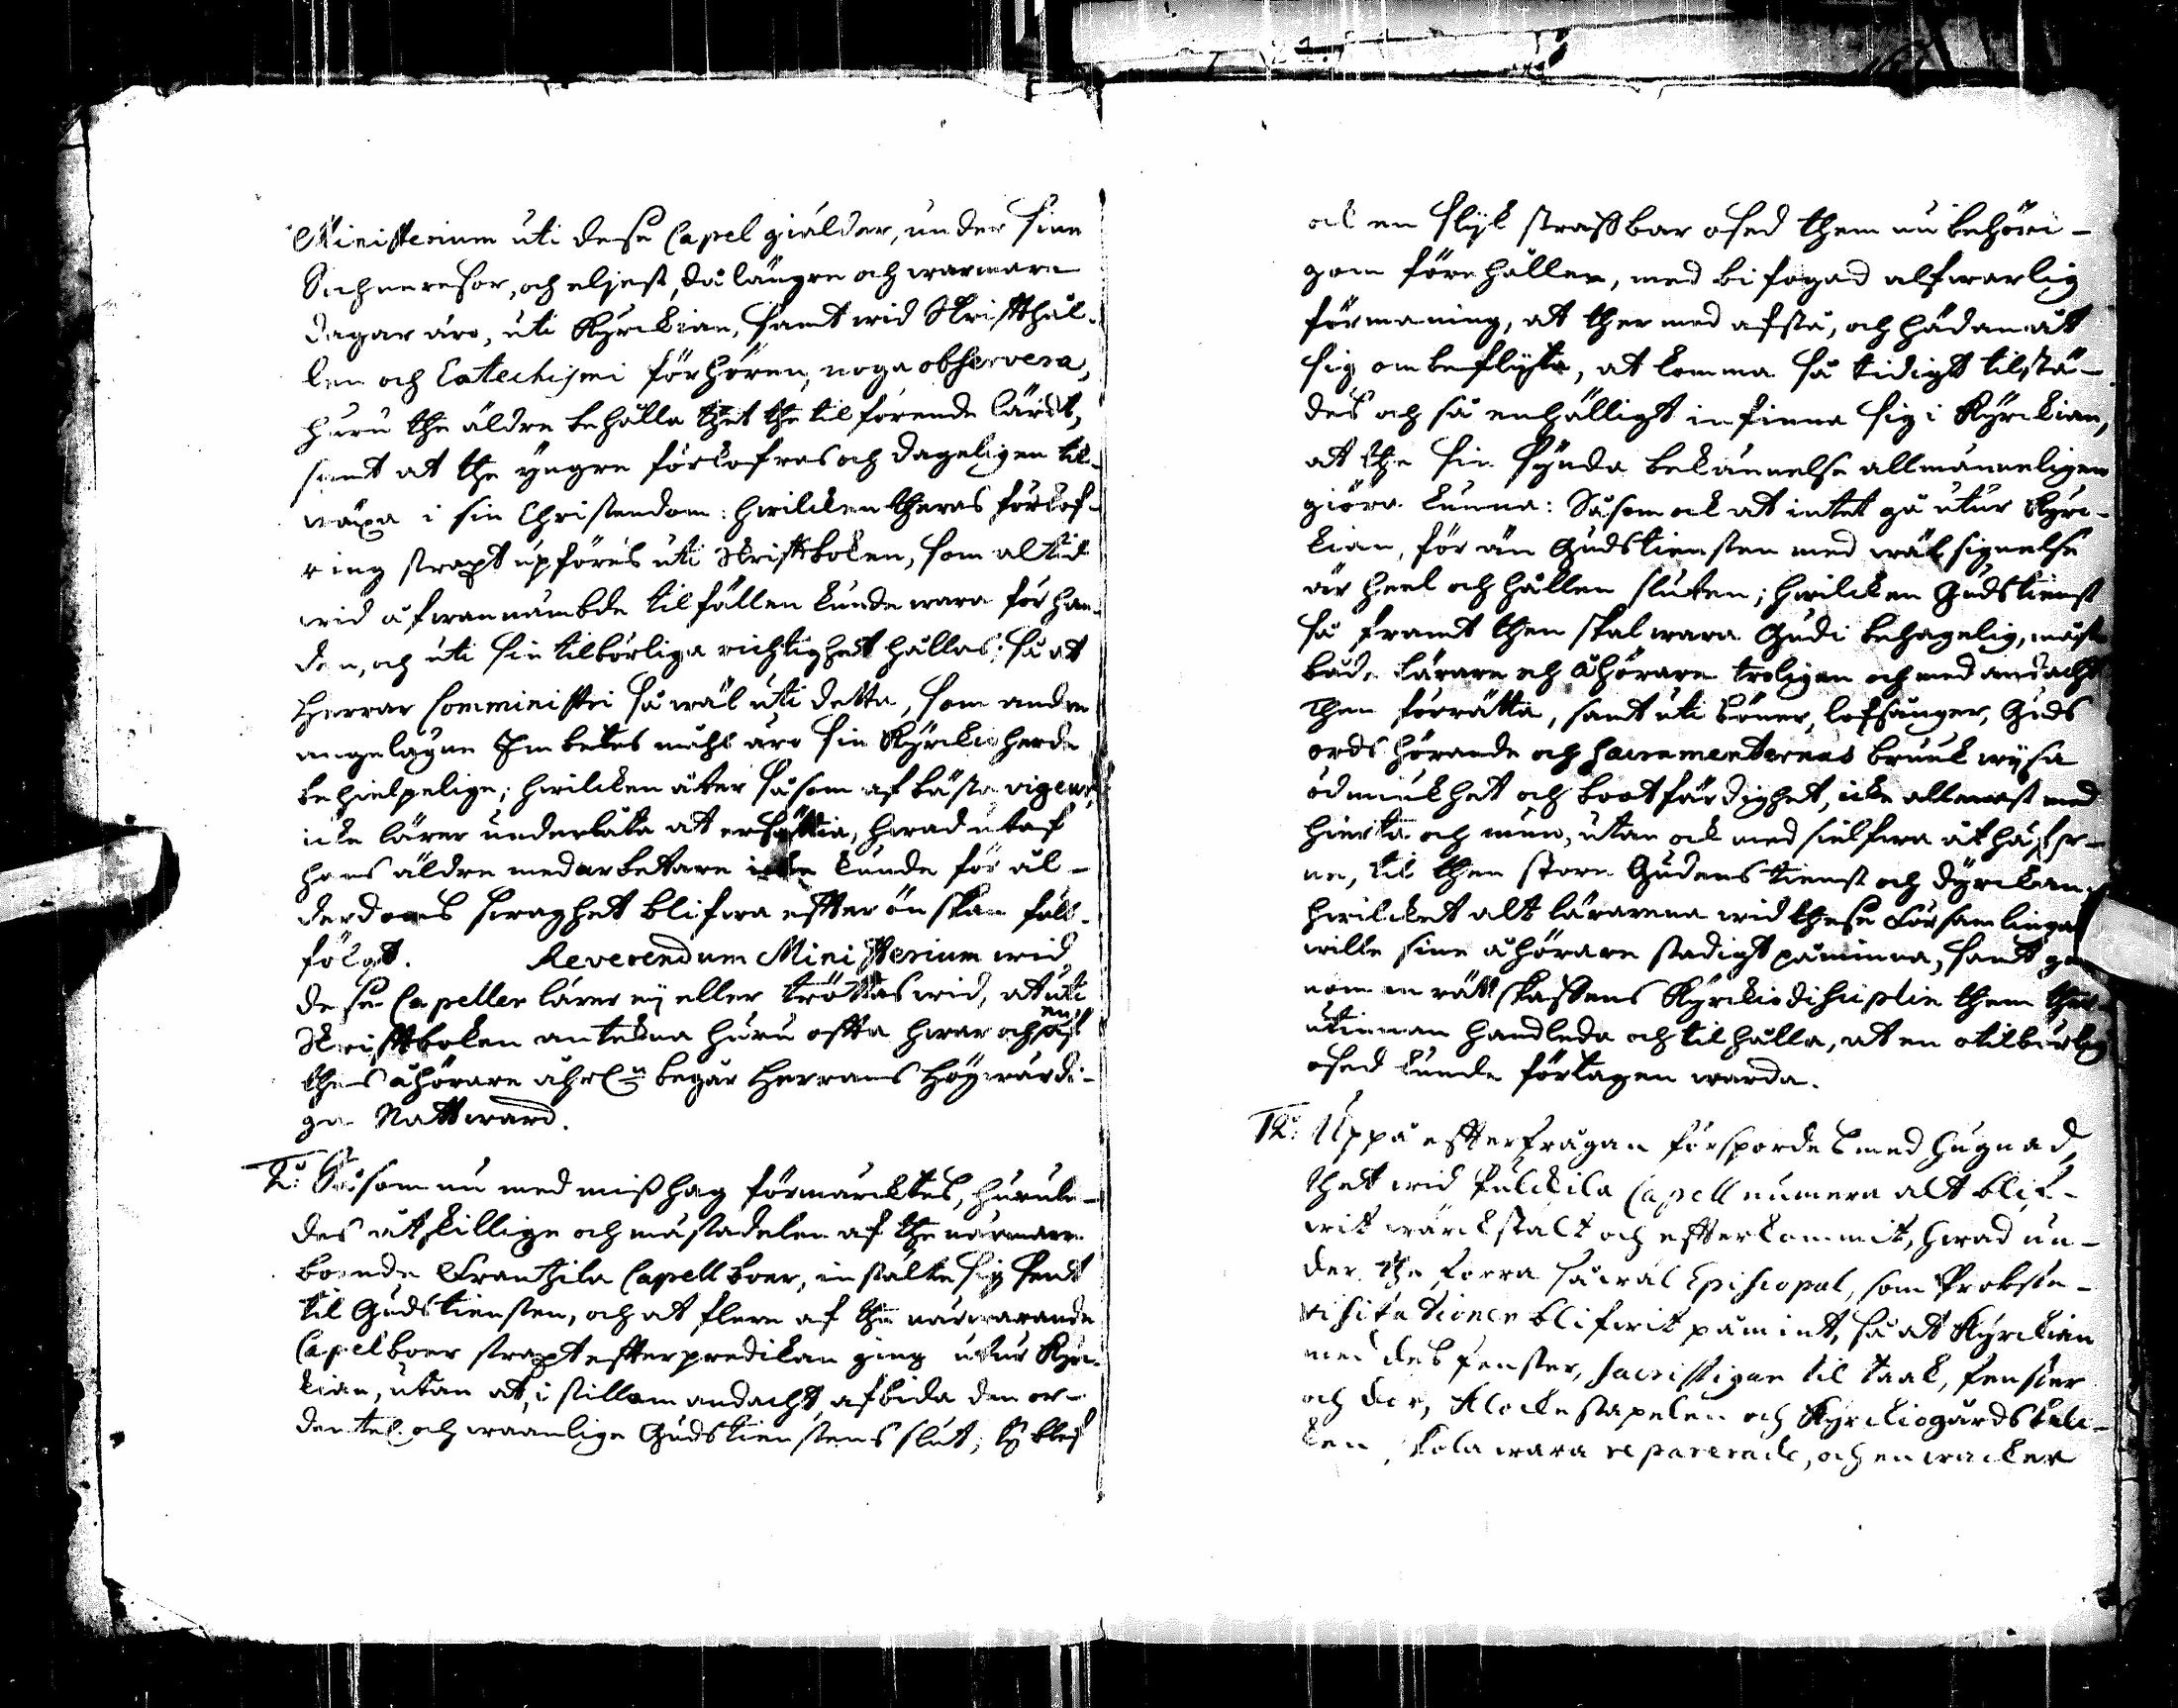 Ministerium uti desse Capel giälder, under sine
Siukneresor, och eljest, då längre och warmare
dagar äro, uti Kyrckian, samt wid Skrifthål-
len och Catechismi förhören, noga observera,
huru the äldre behålla thet the tilförende lärdt,
samt at the yngre förkofras och dageligen til-
wäxa i sin Christendom: hwilcken theras förkof-
ring straxt upföres uti Skriftboken, som altid
wid åfwannämbde tilfällen kunde wara för han-
den, och uti sin tilbörliga richtighet hållas; så at
Herrar Comministri så wäl uti detta, som andra
angelägne Embetes måhl äro sin Kyrckioherde
behielpelige; hwilcken åter såsom af bästa vigeur,
icke lärer underlåta at ersättia, hwad utaf
hans äldre medarbetare icke kunde för ål-
derdoms swaghet blifwa efter önskan full-
fölgt. Reverendum Ministerium wid
desse Capeller lärer ej eller tröttas wid, at uti
Skriftboken antekna huru offta hwar och en af
thes åhörare åhrl:n begår Herrans Högwärdi-
ga Nattward.
2: Såsom nu med misshag förmärcktes, hurule-
des åtskillige och mästadelen af the närmare
boende Frantzila Capellboer, instälte sig sent
til Gudstiensten, och at flere af the närwarande
Capelboer straxt efter predikan ging utur Kyr-
kian, utan at, i stillom andacht, afbida den or-
dentel. och waanlige Gudstienstens slut; Ty blef
ock en slyk straffbar osed them nu behöri-
gom förehållen, med bifogad alfwarlig
förmaning, at ther med afstå, och hädanåt
sig ombeflyta, at komma så tidigt tilstä-
des och så enhälligt infinna sig i Kyrckian,
at the sin Synda bekännelse allmänneligen
giöra kunna: Såsom ock at intet gå utur Kyrc-
kian, för än Gudstiensten med wälsignelse
är heel och hållen sluten; hwilcken Gudstienst
så framt then skal wara Gudi behagelig, måste
både lärare och åhörare troligen och med andacht
then förrätta, samt uti böner, lofsånger, Guds
ords hörande och Sacramenternas bruuk wysa
ödmiukhet och bootfärdighet, icke allenast med
hierta och mun, utan ock med sielfwa åthäfwor-
na, til then store Gudens tienst och dyrckan,
hwilcket alt lärarena wid thesse Församlingar
wille sine åhörare stadigt påminna, samt ge-
nom en rättskaffens Kyrckiodisciplin them ther
utinnan handleda och tilhålla, at en otilbörlig
osed kunde förtagen warda.
12: Uppå efterfrågan förspordes med hugnad,
thet wid Pulckila Capell numera alt blif-
wit wärckstält och efterkommit, hwad un-
der the förra såwäl Episcopal, som Probste-
visitationer blifwit påmint, så at Kyrckian
med des fenster, Sacristigan til taak, fenster
och dör, Klockestapelen och Kyrckiogårdsbalc-
ken, skola wara reparerade, och en wacker